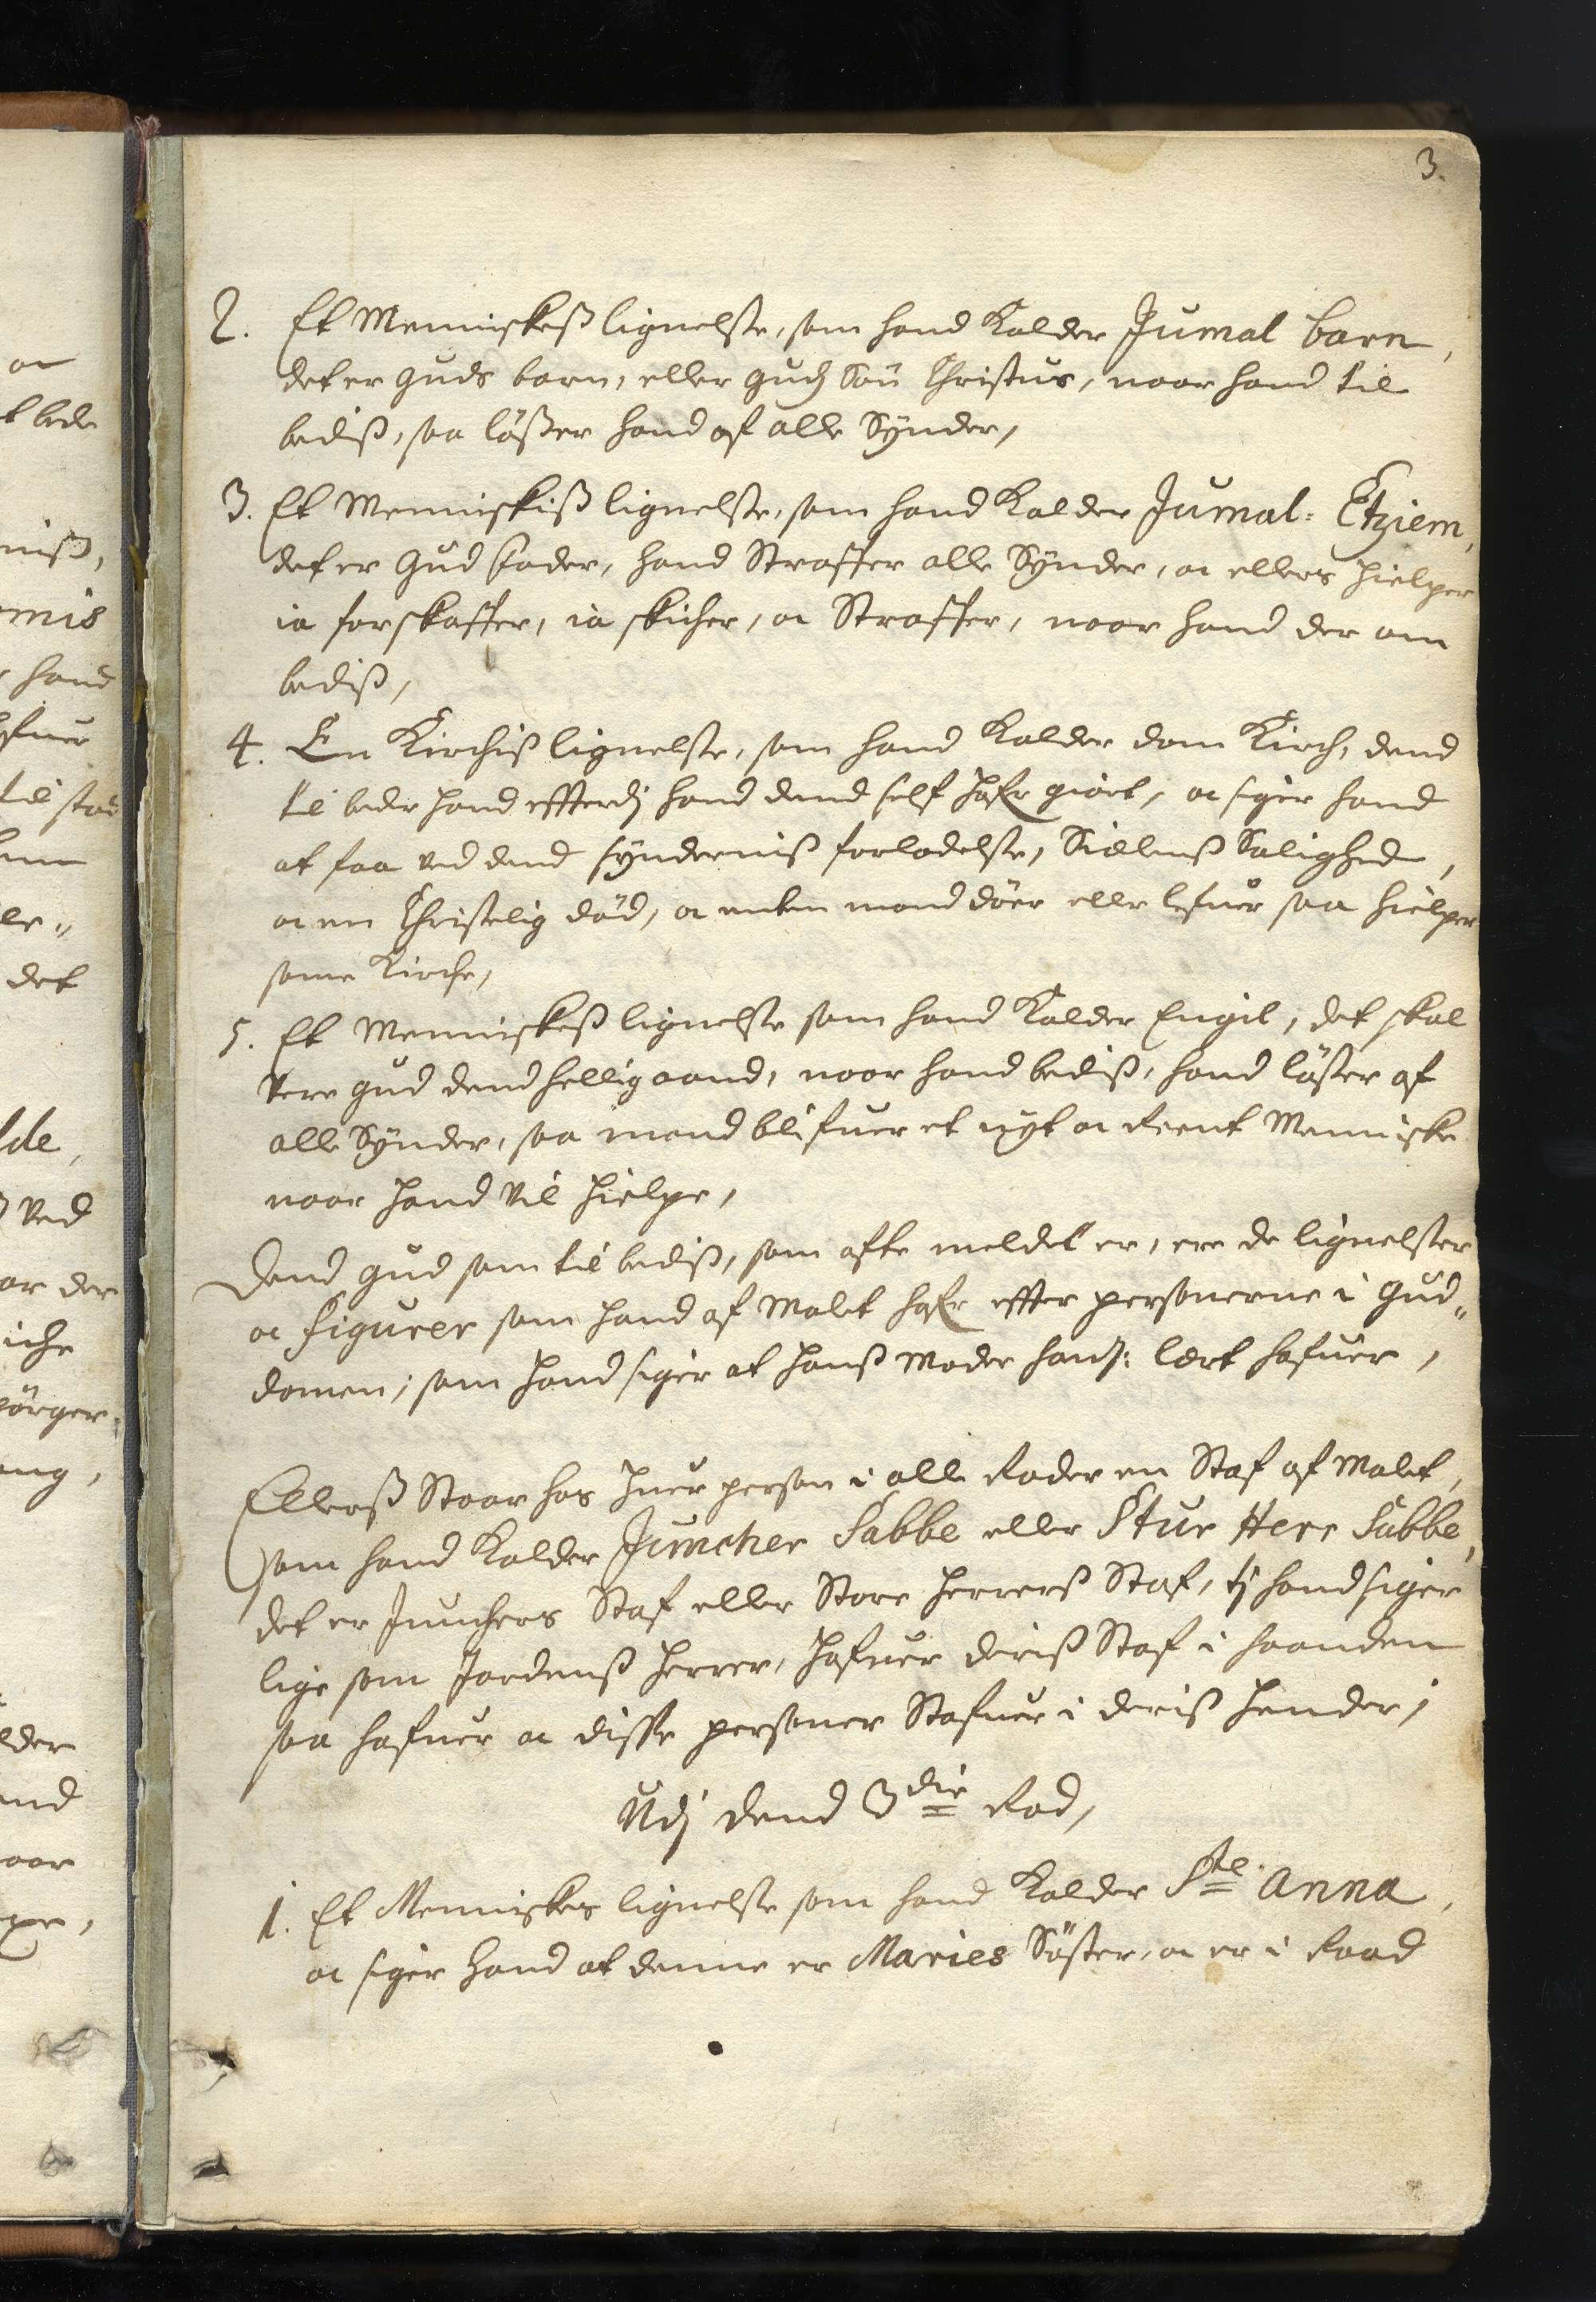 3.
2. Et Menniskeß lignelse, som hand Kalder Jumal barn,
det er Guds barn, eller Gudz Søn Christus, naar hand til
bediß, saa løßer hand af alle Synder,
3. Et Menniskiß lignelse, som hand Kalder Jumal: Etziem,
det er Gud fader, hand Straffer alle Synder, oc ellers hielper
ia forskaffer, ia skicher, oc Straffer, naar hand der om
bediß,
4. En Kirchiß lignelse, som hand Kalder dom Kirch, dend
til beder hand effterdj hand dend self hafr giort, oc siger hand
at faa ved dend syndernis forladelse, Siælenß Salighed,
oc en Christelig död, oc enten mand döer eller lefuer saa hielper
same Kirche,
5. Et Menniskeß lignelse som hand Kalder Engil, det skal
vere Gud dend hellig aand, naar hand bediß, hand löser af
alle Synder, saa mand blifuer et nyt oc reent Menniske
naar hand vil hielpe,
Dend Gud som til bediß, som ofte meldet er, ere de lignelser
oc figurer som hand af Malet hafr effter personerne i Gud„
domen, som hand siger at hanß Moder hanß: lært hafuer,
Ellerß Staar hos huer person i alle Rader en Staf af Malet,
som hand Kalder Juncher Sabbe eller Stur Herr Sabbe,
det er Junchers Staf eller Store Herrerß Staf, tj hand siger
lige som Jordenß Herrer, hafuer deriß Staf i haanden
saa hafuer oc disse personer Stafuer i deriß hender,
Udj dend 3die Rad,
1. Et Menniskes lignelse som hand Kalder Ste. Anna,
oc siger hand at denne er Maries Söster, oc er i Raad